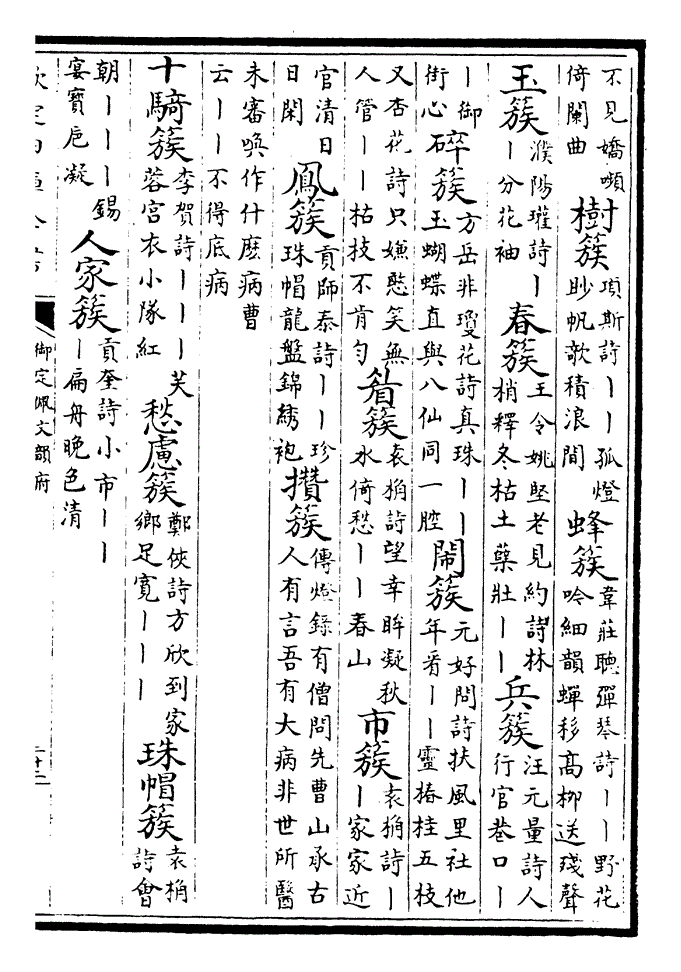 不見嬌嚬倚闌曲 樹簇 項斯詩丨丨孤燈眇帆欹積浪間 蜂簇 韋莊聽彈琴詩丨丨野花吟細韻蟬移髙栁送殘聲
玉簇 濮陽瓘詩丨丨分花袖 春簇 王令姚堅老見約詩林梢釋冬枯土藥壯丨丨 兵簇 汪元量詩人行官巷口丨
丨御街心 碎簇 方岳非瓊花詩真珠丨丨玉蝴蝶直與八仙同一腔 鬧簇 元好問詩扶風里社他年看丨丨靈椿桂五枝
又杏花詩只嫌憨笑無人管丨丨枯枝不肯匀 眉簇 袁桷詩望幸眸凝秋水倚愁丨丨春山 市簇 袁桷詩丨丨家家近
官清日日閑 鳳簇 貢師泰詩丨丨珍珠帽龍盤錦綉袍 攢簇 傳燈錄有僧問先曹山承古人有言吾有大病非世所醫
未審喚作什麽病曹云丨丨不得底病
十騎簇 李賀詩丨丨丨芙蓉宮衣小隊紅 愁慮簇 鄭俠詩方欣到家鄉足寛丨丨丨 珠帽簇 袁桷詩會
朝丨丨丨錫宴寶卮凝 人家簇 貢奎詩小市丨丨丨扁舟晚色清
欽定四庫全書
御定佩文韻府